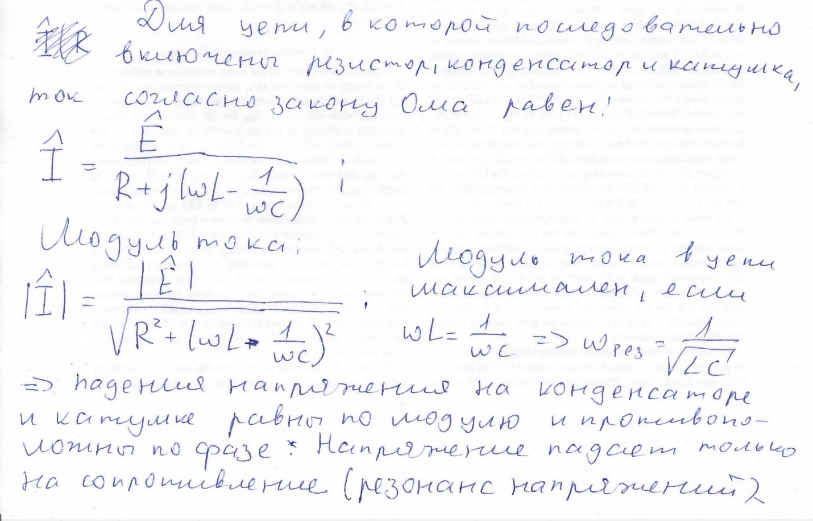 Для цепи, в которой последовательно
включены резистор, конденсатор и катушка,
ток согласно закону Ома равен:
Î = Ê / (R + j(ωL - 1/ωC)) ;
Модуль тока:
|Î| = |Ê| / √(R² + (ωL - 1/ωC)²) ;
Модуль тока в цепи
максимален, если
ωL = 1/ωC => ωрез = 1/√LC
=> падения напряжения на конденсаторе
и катушке равны по модулю и противопо-
ложны по фазе. Напряжение падает только
на сопротивление (резонанс напряжений)